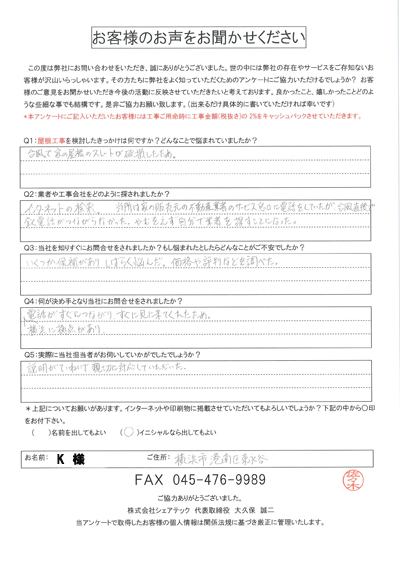 お客様のお声をお聞かせください
この度は弊社にお問い合わせをいただき、誠にありがとうございました。世の中には弊社の存在やサービスをご存知ないお
客様が沢山いらっしゃいます。その方たちに弊社をよく知っていただくためのアンケートにご協力いただけるでしょうか？ お客
様のご意見をお聞かせいただき今後の活動に反映させていただきたいと考えております。良かったこと、嬉しかったことどのよ
うな些細な事でも結構です。是非ご協力お願い致します。（出来るだけ具体的に書いていただければ幸いです）
*本アンケートにご記入いただいたお客様には工事ご用命時に工事金額(税抜き)の 2%をキャッシュバックさせていただきます。
Q1：屋根工事を検討したきっかけは何ですか？どんなことで悩まれていましたか？
台風で家の屋根のスレートが破損したため。
Q2：業者や工事会社をどのように探されましたか？
インターネットの検索。 当初は家の販売元の不動産業者のサービス窓口に電話をしていたが、台風直後で
全く電話がつながらなかった。やむをえず自分で業者を探すことになった。
Q3：当社を知りすぐにお問合せをされましたか？もし悩まれたとしたらどんなことがご不安でしたか？
いくつか候補があり しばらく悩んだ。価格や評判などを調べた。
Q4：何が決め手となり当社にお問合せをされましたか？
電話がすぐにつながり、すぐに見に来てくれたため。
横浜に拠点があり
Q5：実際に当社担当者がお伺いしていかがでしたでしょうか？
説明がていねいで親切に対応していただいた。
＊上記についてお願いがあります。インターネットや印刷物に掲載させていただいてもよろしいでしょうか？下記の中から〇印
をお付下さい。
（ ）名前を出してもよい （〇）イニシャルなら出してもよい
お名前： K 様 ご住所： 横浜市港南区東永谷
FAX 045-476-9989
佐々木
ご協力ありがとうございました。
株式会社シェアテック 代表取締役 大久保 誠二
当アンケートで取得したお客様の個人情報は関係法規に基づき厳正に管理いたします。